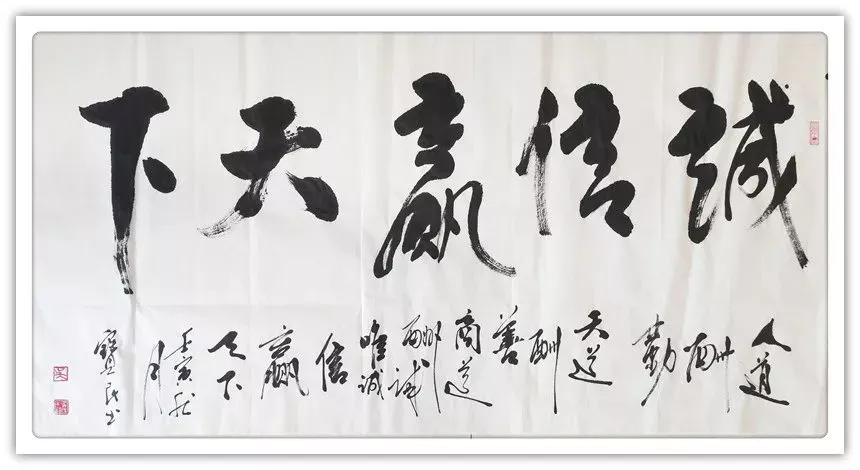 誠信贏天下
人道
酬
勤
天道
酬
善
商道
酬誠
唯誠
信
贏
天下
壬寅秋
月
寶民书